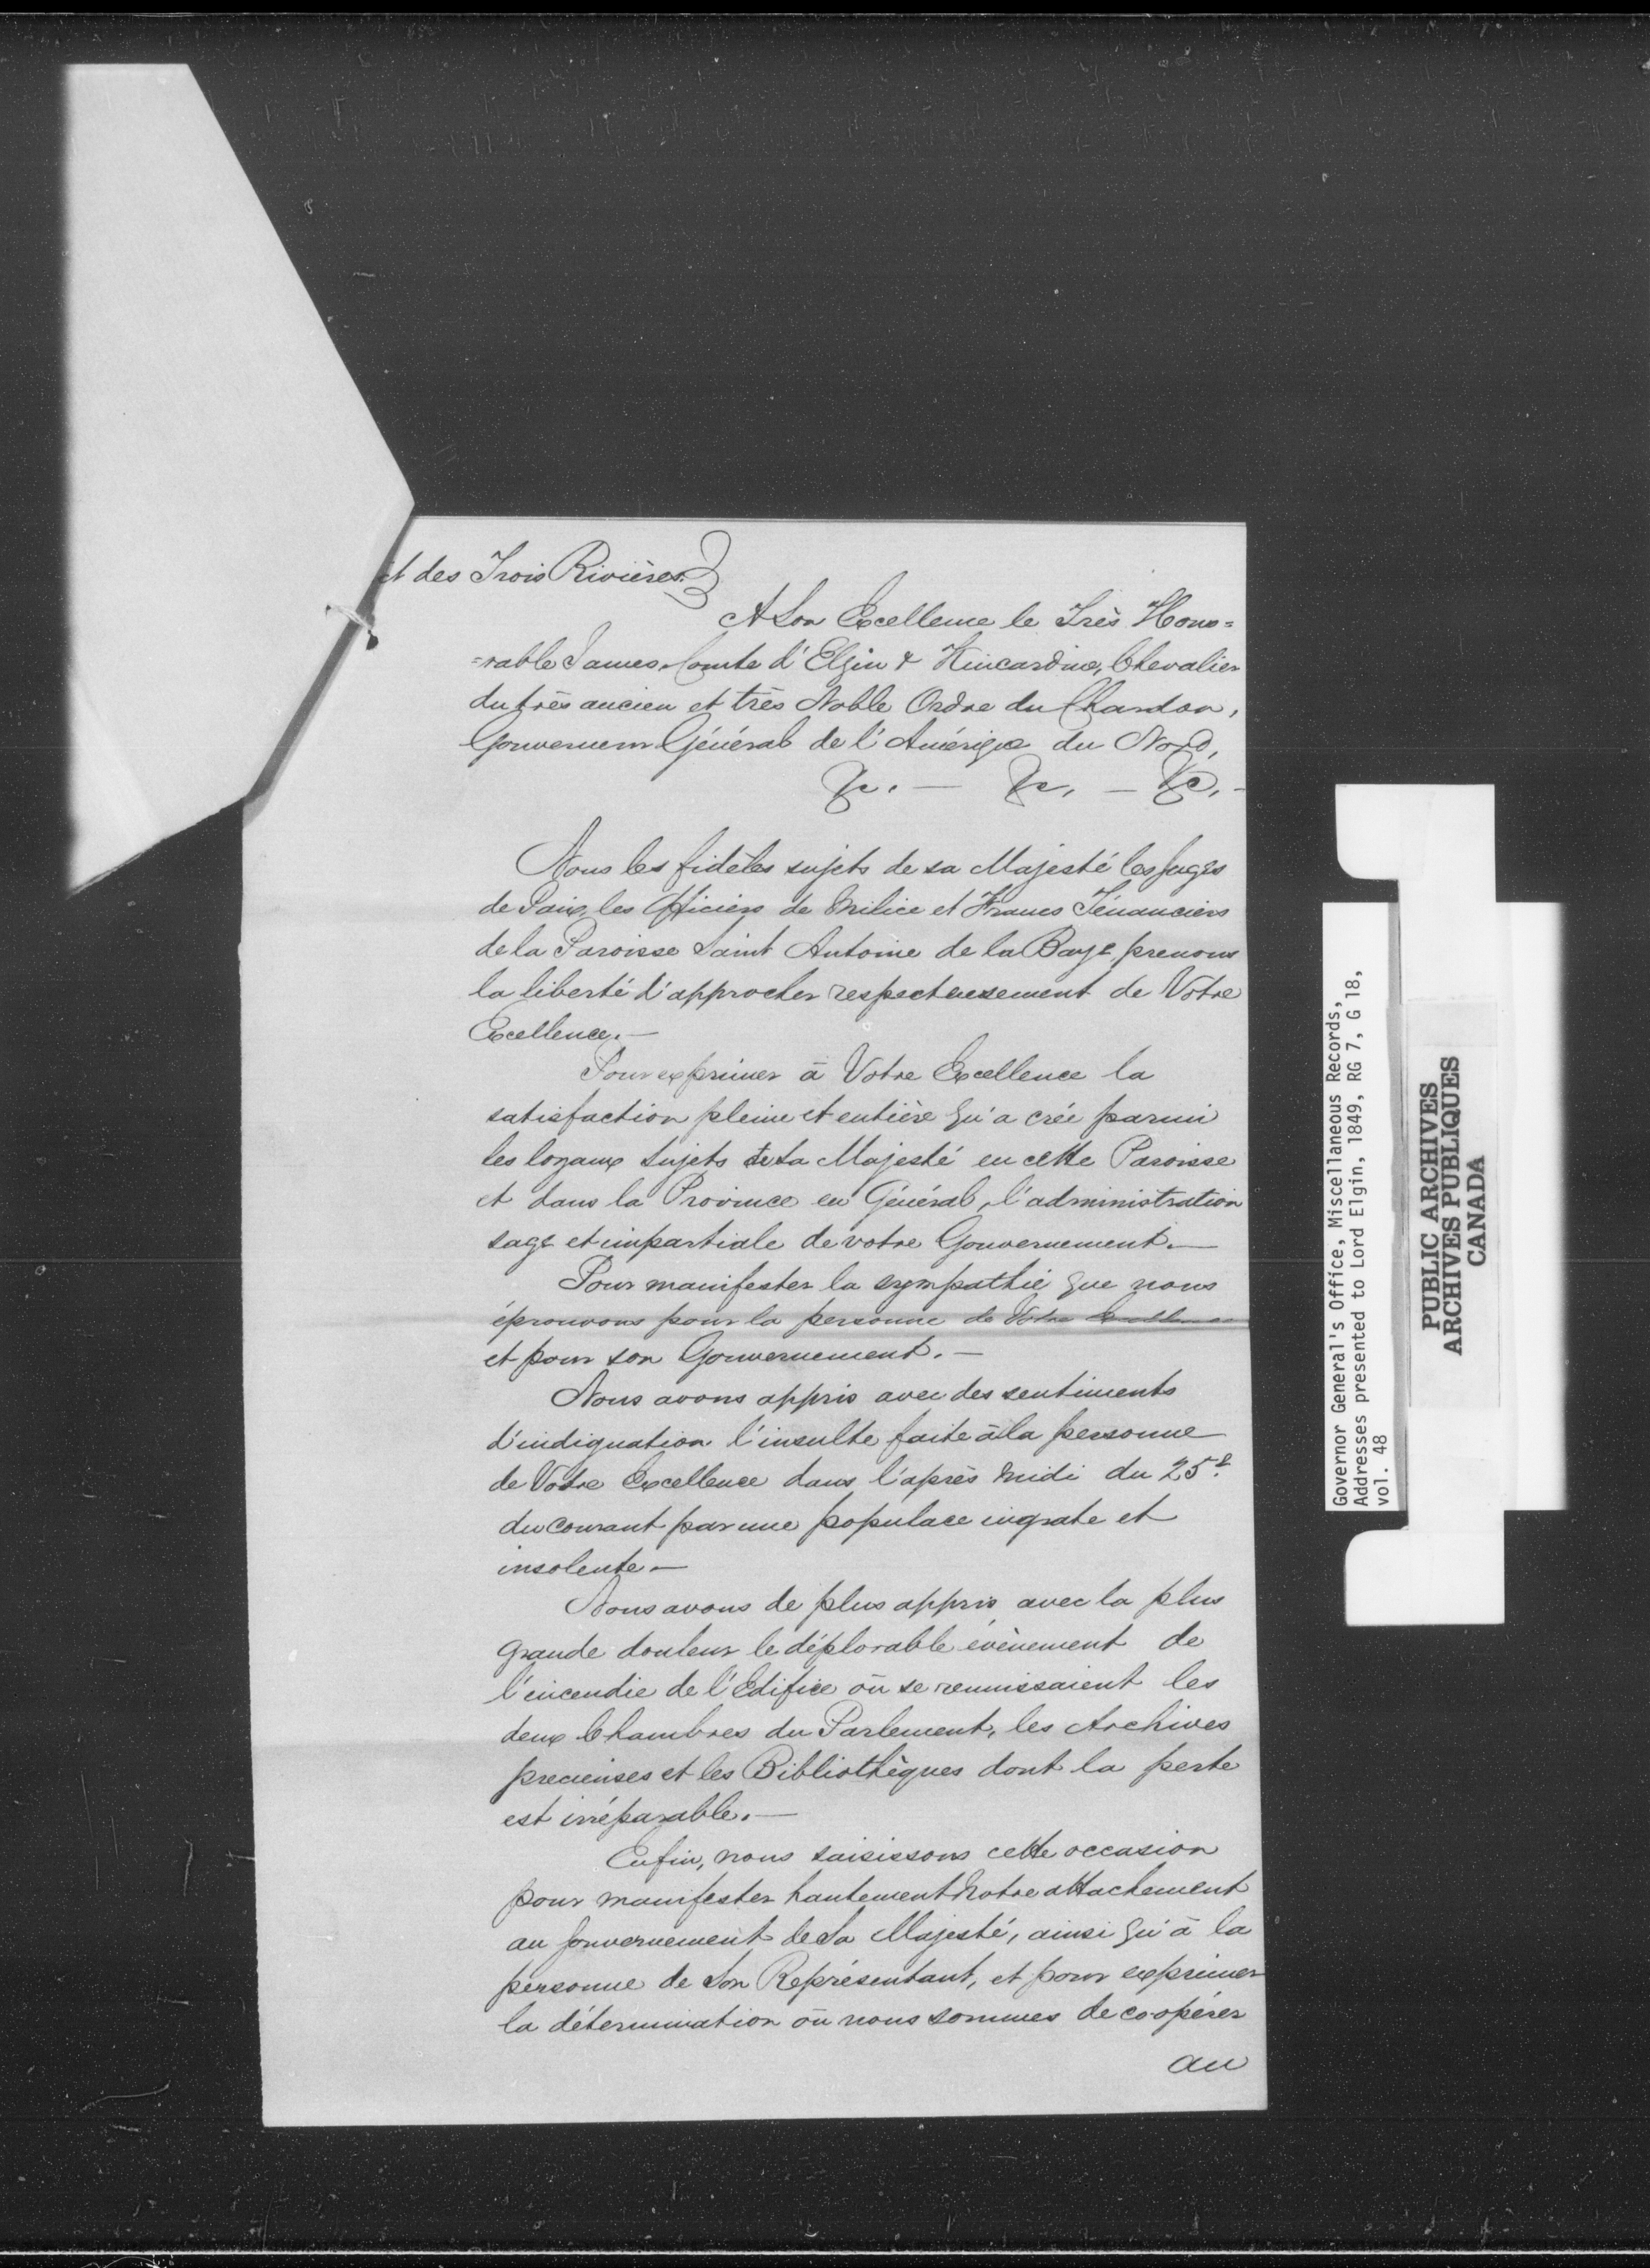 ct des Trois Rivières.
A Son Excellence le Très Hono=
=rable James, Comte d'Elgin & Kincardine, Chevalier
du très ancien et très Noble Ordre du Chardon,
Gouverneur Général de l'Amérique du Nord,
&c. — &c. — &c. -
Nous les fidèles sujets de sa Majesté les Juges
de Paix, les Officiers de Milice et Francs Ténanciers
de la Paroisse Saint Antoine de la Baye, prenons
la liberté d'approcher respectueusement de Votre
Excellence. —
Pour exprimer à Votre Excellence la
satisfaction pleine et entière qu'a crée parmi
les loyaux Sujets de Sa Majesté en cette Paroisse
et dans la Province en Général, l'administration
sage et impartiale de votre Gouvernement. —
Pour manifester la sympathie que nous
éprouvons pour la personne de Votre Excellence
et pour son Gouvernement. —
Nous avons appris avec des sentiments
d'indignation l'insulte faite à la personne
de Votre Excellence dans l'après midi du 25e
du courant par une populace ingrate et
insolente —
Nous avons de plus appris avec la plus
grande douleur le déplorable évènement de
l'incendie de l'Edifice où se reunissaient les
deux Chambres du Parlement, les Archives
precieuses et les Bibliothèques dont la perte
est irréparable. —
Enfin, nous saisissons cette occasion
pour manifester hautement Notre attachement
au Gouvernement de Sa Majesté, ainsi qu'à la
personne de Son Représentant, et pour exprimer
la détermination où nous sommes de co-opérer
au
Governor General's Office, Miscellaneous Records,
Addresses presented to Lord Elgin, 1849, RG 7, G 18,
vol. 48
PUBLIC ARCHIVES
ARCHIVES PUBLIQUES
CANADA